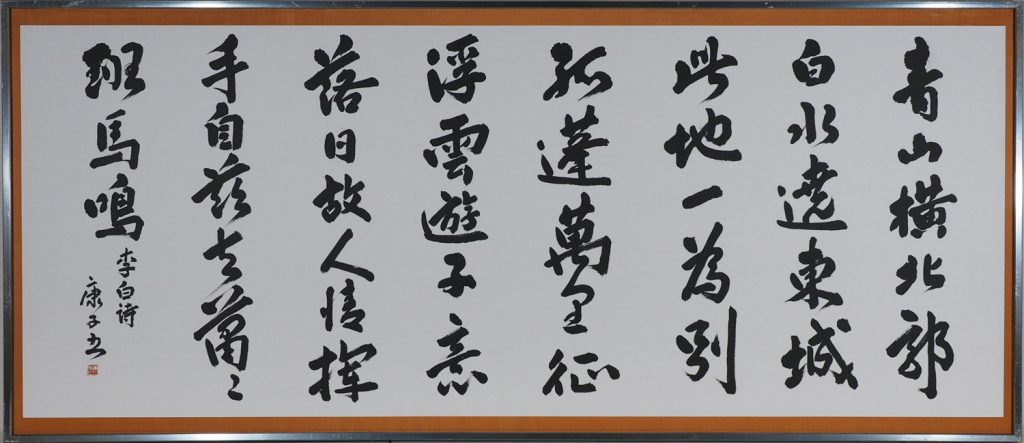 青山橫北郭
白水遶東城
此地一為別
孤蓬萬里征
浮雲遊子意
落日故人情揮
手自茲去蕭〻
班馬鳴
李白诗
康子书